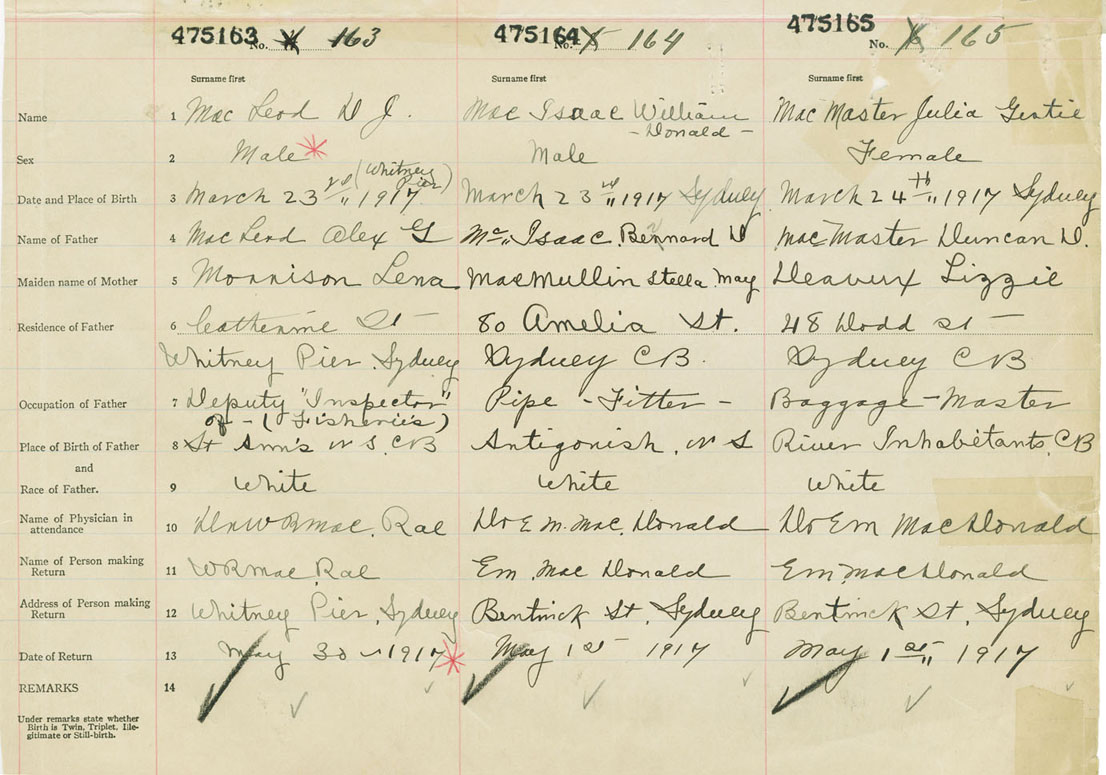 475163 No. 163 475164 No. 164 475165 No. 165
Surname first Surname first Surname first
Name 1 Mac Leod D J. Mac Isaac William Mac Master Julia Gertie
- Donald -
Sex 2 Male Male Female
(Whitney Pier)
Date and Place of Birth 3 March 23rd 1917 March 23rd 1917 Sydney March 24th 1917 Sydney
Name of Father 4 Mac Leod Alex G Mc Isaac Bernard D Mac Master Duncan D.
Maiden name of Mother 5 Morrison Lena MacMullin Stella May Lizzie
Residence of Father 6 Catherine St - 80 Amelia St. 48 Dodd St -
Whitney Pier. Sydney Sydney C B. Sydney C B
Occupation of Father 7 Deputy "Inspector" Pipe - Fitter - Baggage-Master
of - (Fisheries)
Place of Birth of Father 8 St Ann's N S. CB Antigonish. N S River Inhabitants. CB
and
Race of Father. 9 White White White
Name of Physician in
attendance 10 Dr W R Mac. Rae Dr E M. Mac. Donald Dr E M MacDonald
Name of Person making
Return 11 W R Mac Rae E M. Mac Donald E M MacDonald
Address of Person making
Return 12 Whitney Pier, Sydney Bentinck St, Sydney Bentinck St, Sydney
Date of Return 13 May 30 1917 May 1st 1917 May 1st 1917
REMARKS 14
Under remarks state whether
Birth is Twin, Triplet, Ille-
gitimate or Still-birth.